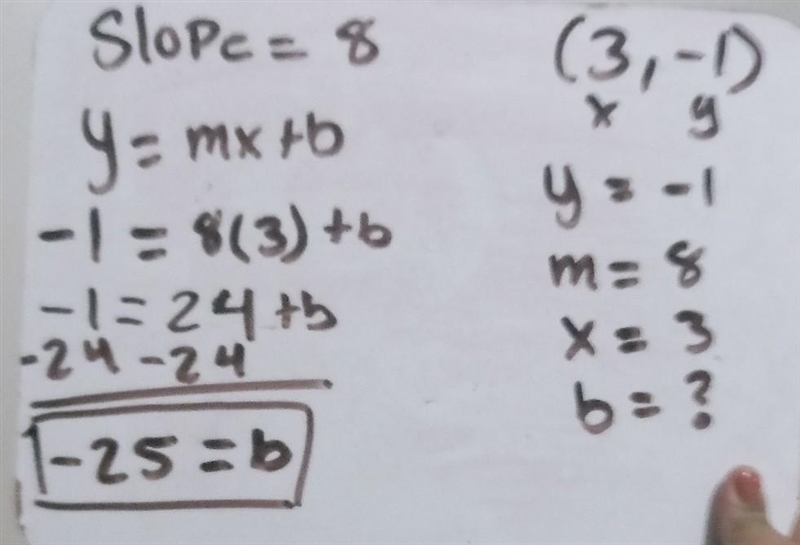 Slope = 8
y = mx + b
-1 = 8(3) + b
-1 = 24 + b
-24 -24
-25 = b
(3, -1)
x y
y = -1
m = 8
x = 3
b = ?